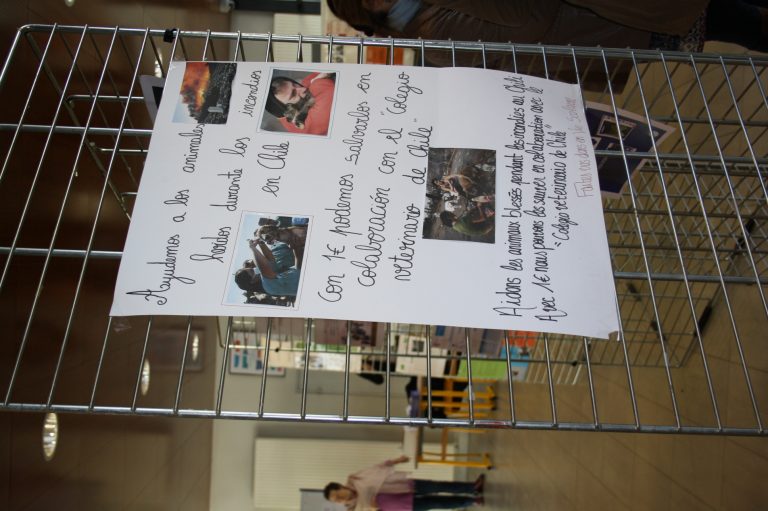 Aayudemos a los animales
heridos durante los incendios
en Chile
Con 1€ podemos salvarlos en
colaboración con el "Colegio
veterinario de Chile"
Aidons les animaux blessés pendant les incendies au Chili
Avec 1€ nous pouvons les sauver en collaboration avec le
"Colegio veterinario de Chile"